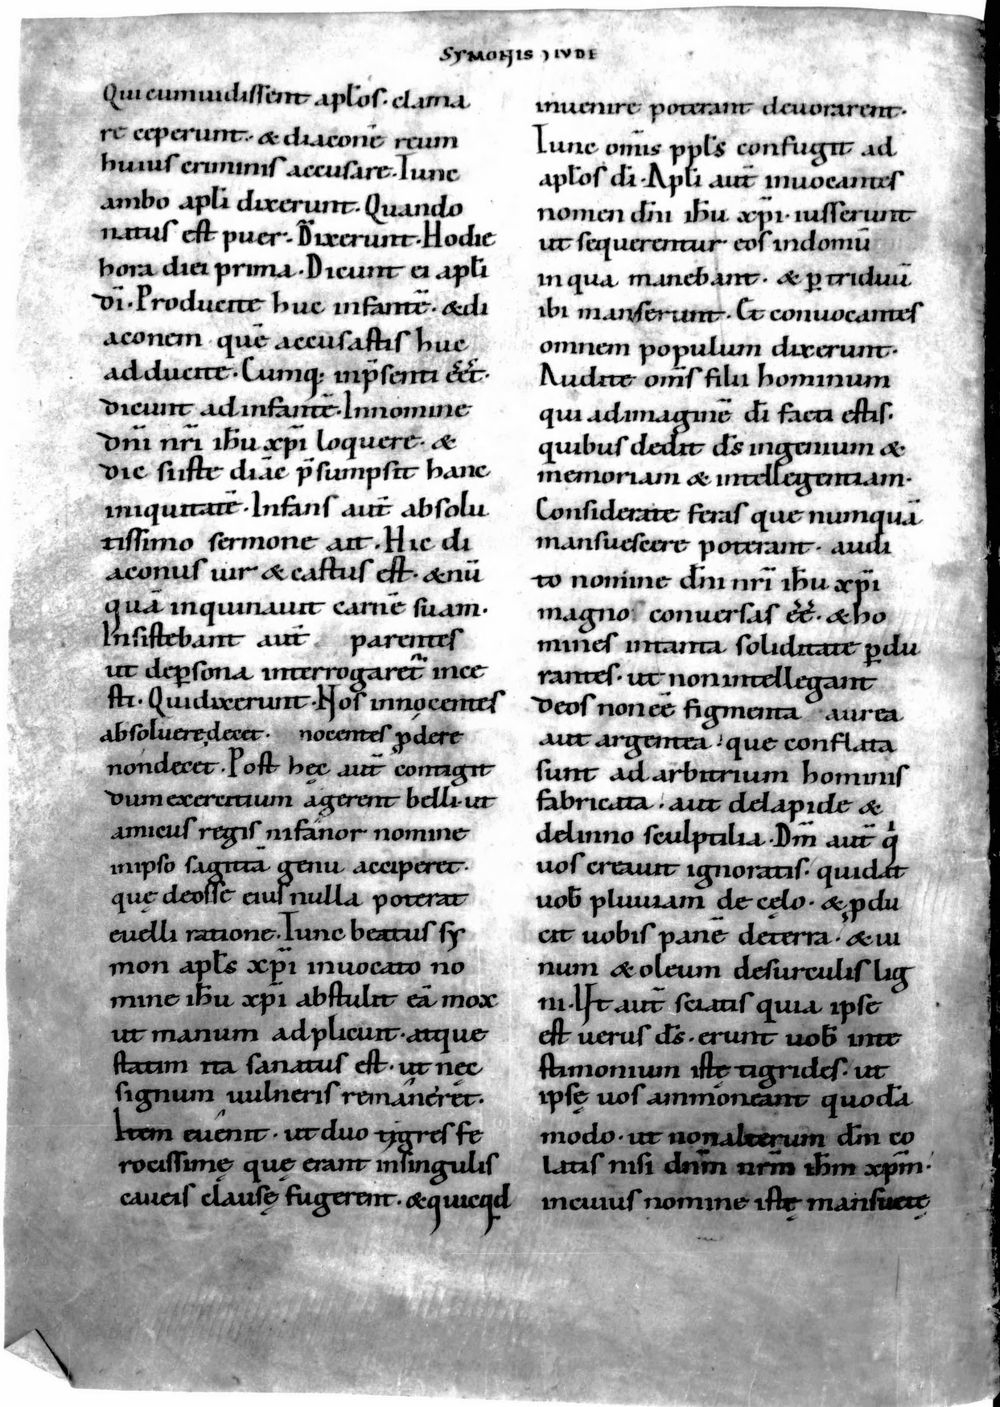 SYMONIS ⁊ IVDE
Qui cum uidissent apl̄os· clama
re ceperunt· & diaconē reum
huius criminis accusare· Tunc
ambo apl̄i dixerunt· Quando
natus est puer· Dixerunt· Hodie
hora diei prima· Dicunt ei apl̄i
dī· Producite huc infantē· & di
aconem quē accusastis huc
adducite· Cumq; inp̄senti eēt·
dicunt ad infantē· In nomine
dn̄i nr̄i ih̄u xp̄i loquere· &
dic si iste diāc p̄sumpsit hanc
iniquitatē· Infans aut̄ absolu
tissimo sermone ait· Hic di
aconus uir & castus est· & nū
quā inquinauit carnē suam·
Insistebant aut̄ parentes
ut de ꝑsona interrogaret̄ ince
sti· Qui dixerunt· Nos innocentes
absoluere decet· nocentes ꝓdere
non decet· Post hęc aut̄ contigit
dum exercitium agerent belli· ut
amicus regis nifanor nomine
in ipso sagittā genu acciperet·
quę de osse eius nulla poterat
euelli ratione· Tunc beatus sy
mon apl̄s xp̄i inuocato no
mine ih̄u xp̄i abstulit eā mox
ut manum adplicuit· atque
statim ita sanatus est· ut nec
signum uulneris remaneret·
Item euenit· ut duo tygres fe
rocissimę quę erant in singulis
caueis clausę fugerent· & quicqd
inuenire poterant deuorarent·
Tunc omīs ppl̄s confugit ad
apl̄os dī· Apl̄i aut̄ inuocantes
nomen dn̄i ih̄u xp̄i· iusserunt
ut sequerentur eos in domū
in qua manebant· & ꝑ triduū
ibi manserunt· Et conuocantes
omnem populum dixerunt·
Audite om̄s filii hominum
qui ad imaginē dī facti estis·
quibus dedit ds̄ ingenium &
memoriam & intellegentiam·
Considerate feras que numquā
mansuescere poterant· audi
to nomine dn̄i nr̄i ih̄u xp̄i
magno conuersas eē· & ho
mines in tanta soliditate ꝑdu
rantes· ut non intellegant
deos non eē figmenta aurea
aut argentea· que conflata
sunt ad arbitrium hominis
fabricata· aut de lapide &
de linno sculptilia· Dm̄ aut̄ q̇
uos creauit ignoratis· qui dat
uob̄ pluuiam de cęlo· & ꝓdu
cit uobis panē de terra· & ui
num & oleum de surculis lig
ni· Ist aut̄ sciatis quia ipse
est uerus ds̄· erunt uob̄ in te
stimonium istę tigrides· ut
ipsę uos ammoneant quodā
modo· ut non alterum dm̄ co
latis nisi dnm̄ nrm̄ ih̄m xp̄m·
in cuius nomine istę mansuetę